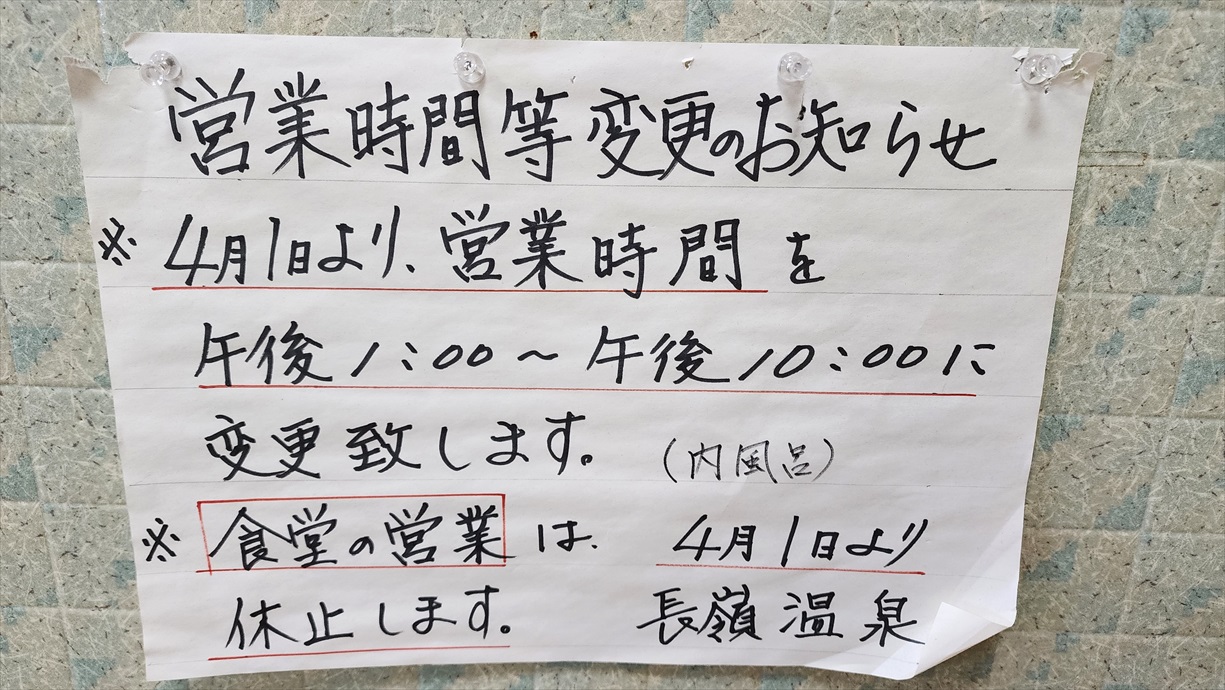 営業時間等変更のお知らせ
※ 4月1日より、営業時間を
午後1:00～午後10:00に
変更致します。 (内風呂)
※ 食堂の営業は、 4月1日より
休止します。 長嶺温泉